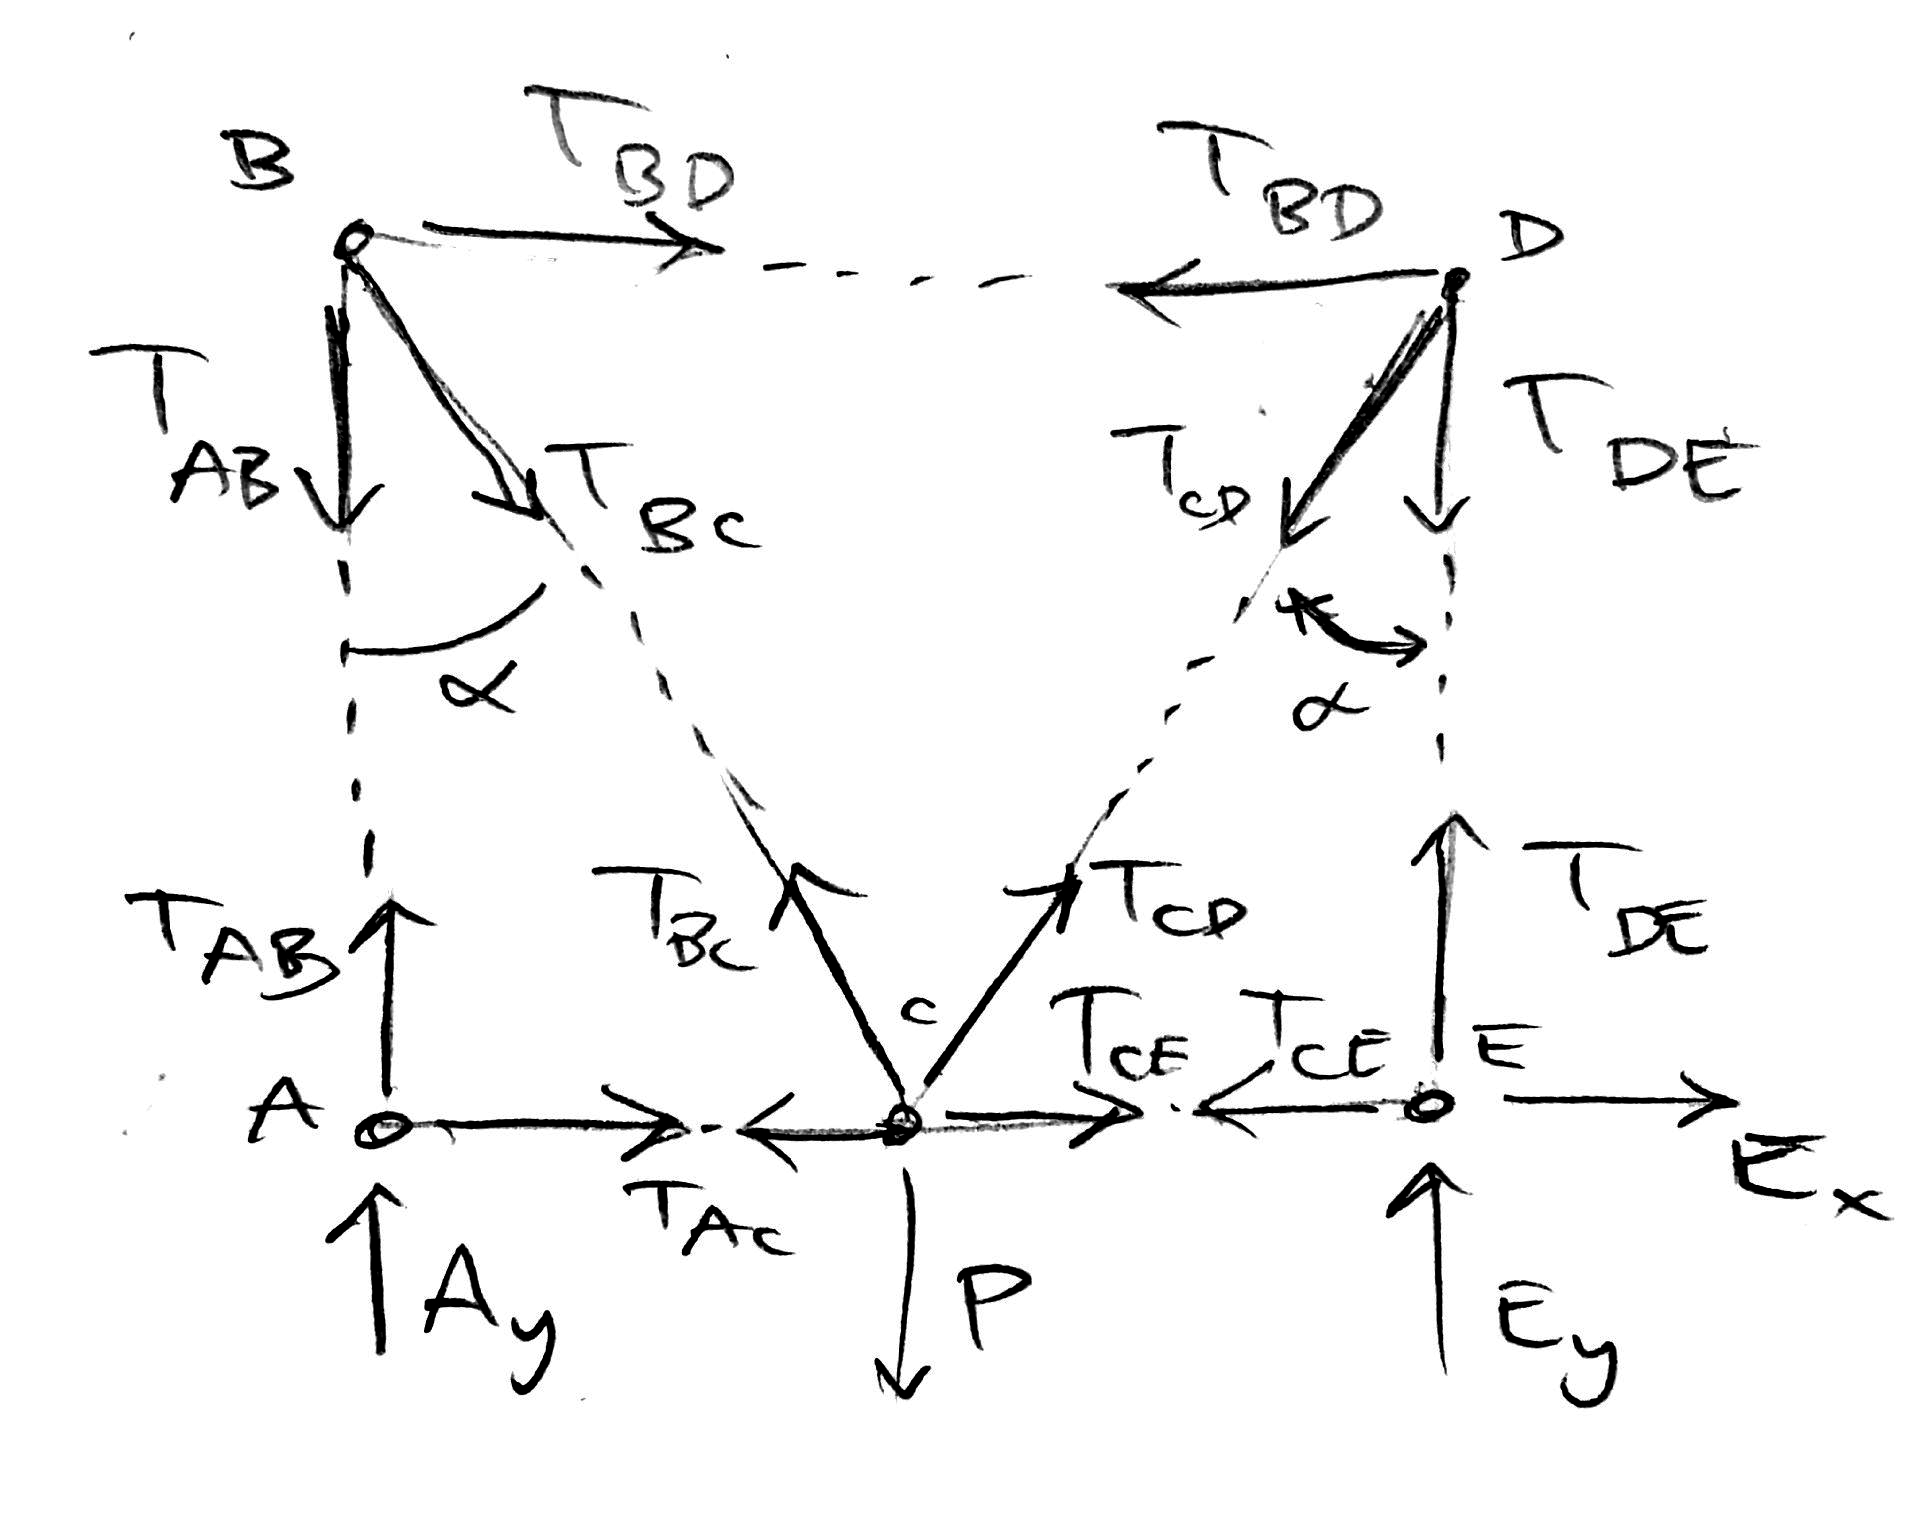 B T_BD T_BD D
T_AB T_BC T_CD T_DE
α α
T_AB T_BC T_CD T_DE
A C T_CE T_CE E
T_AC E_x
A_y P E_y